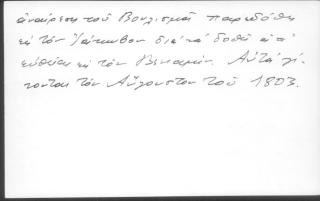 ἀναίρεση τοῦ Βουλισμᾶ παρεδόθη
εἰς τὸν Ἰάκωβον διὰ νὰ δοθῇ ἀπ'
εὐθείας εἰς τὸν Βενιαμίν. Αὐτὰ γί-
νονται τὸν Αὔγουστον τοῦ 1803.